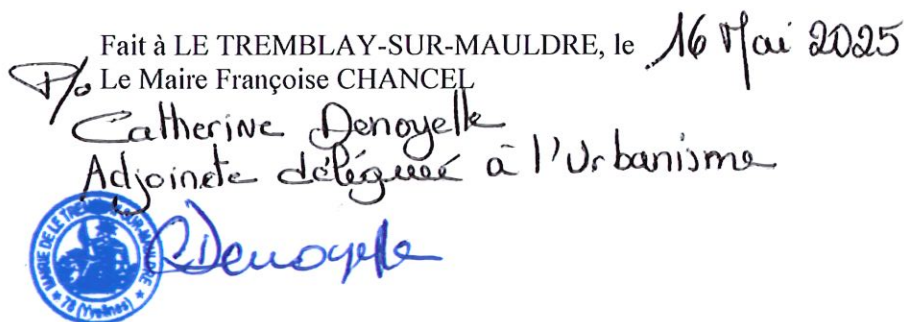 Fait à LE TREMBLAY-SUR-MAULDRE, le 16 Mai 2025
P/o Le Maire Françoise CHANCEL
Catherine Denoyelle
Adjointe déléguée à l'Urbanisme
MAIRIE DE LE TREMBLAY-SUR-MAULDRE
* 78 (Yvelines) *
CDenoyelle